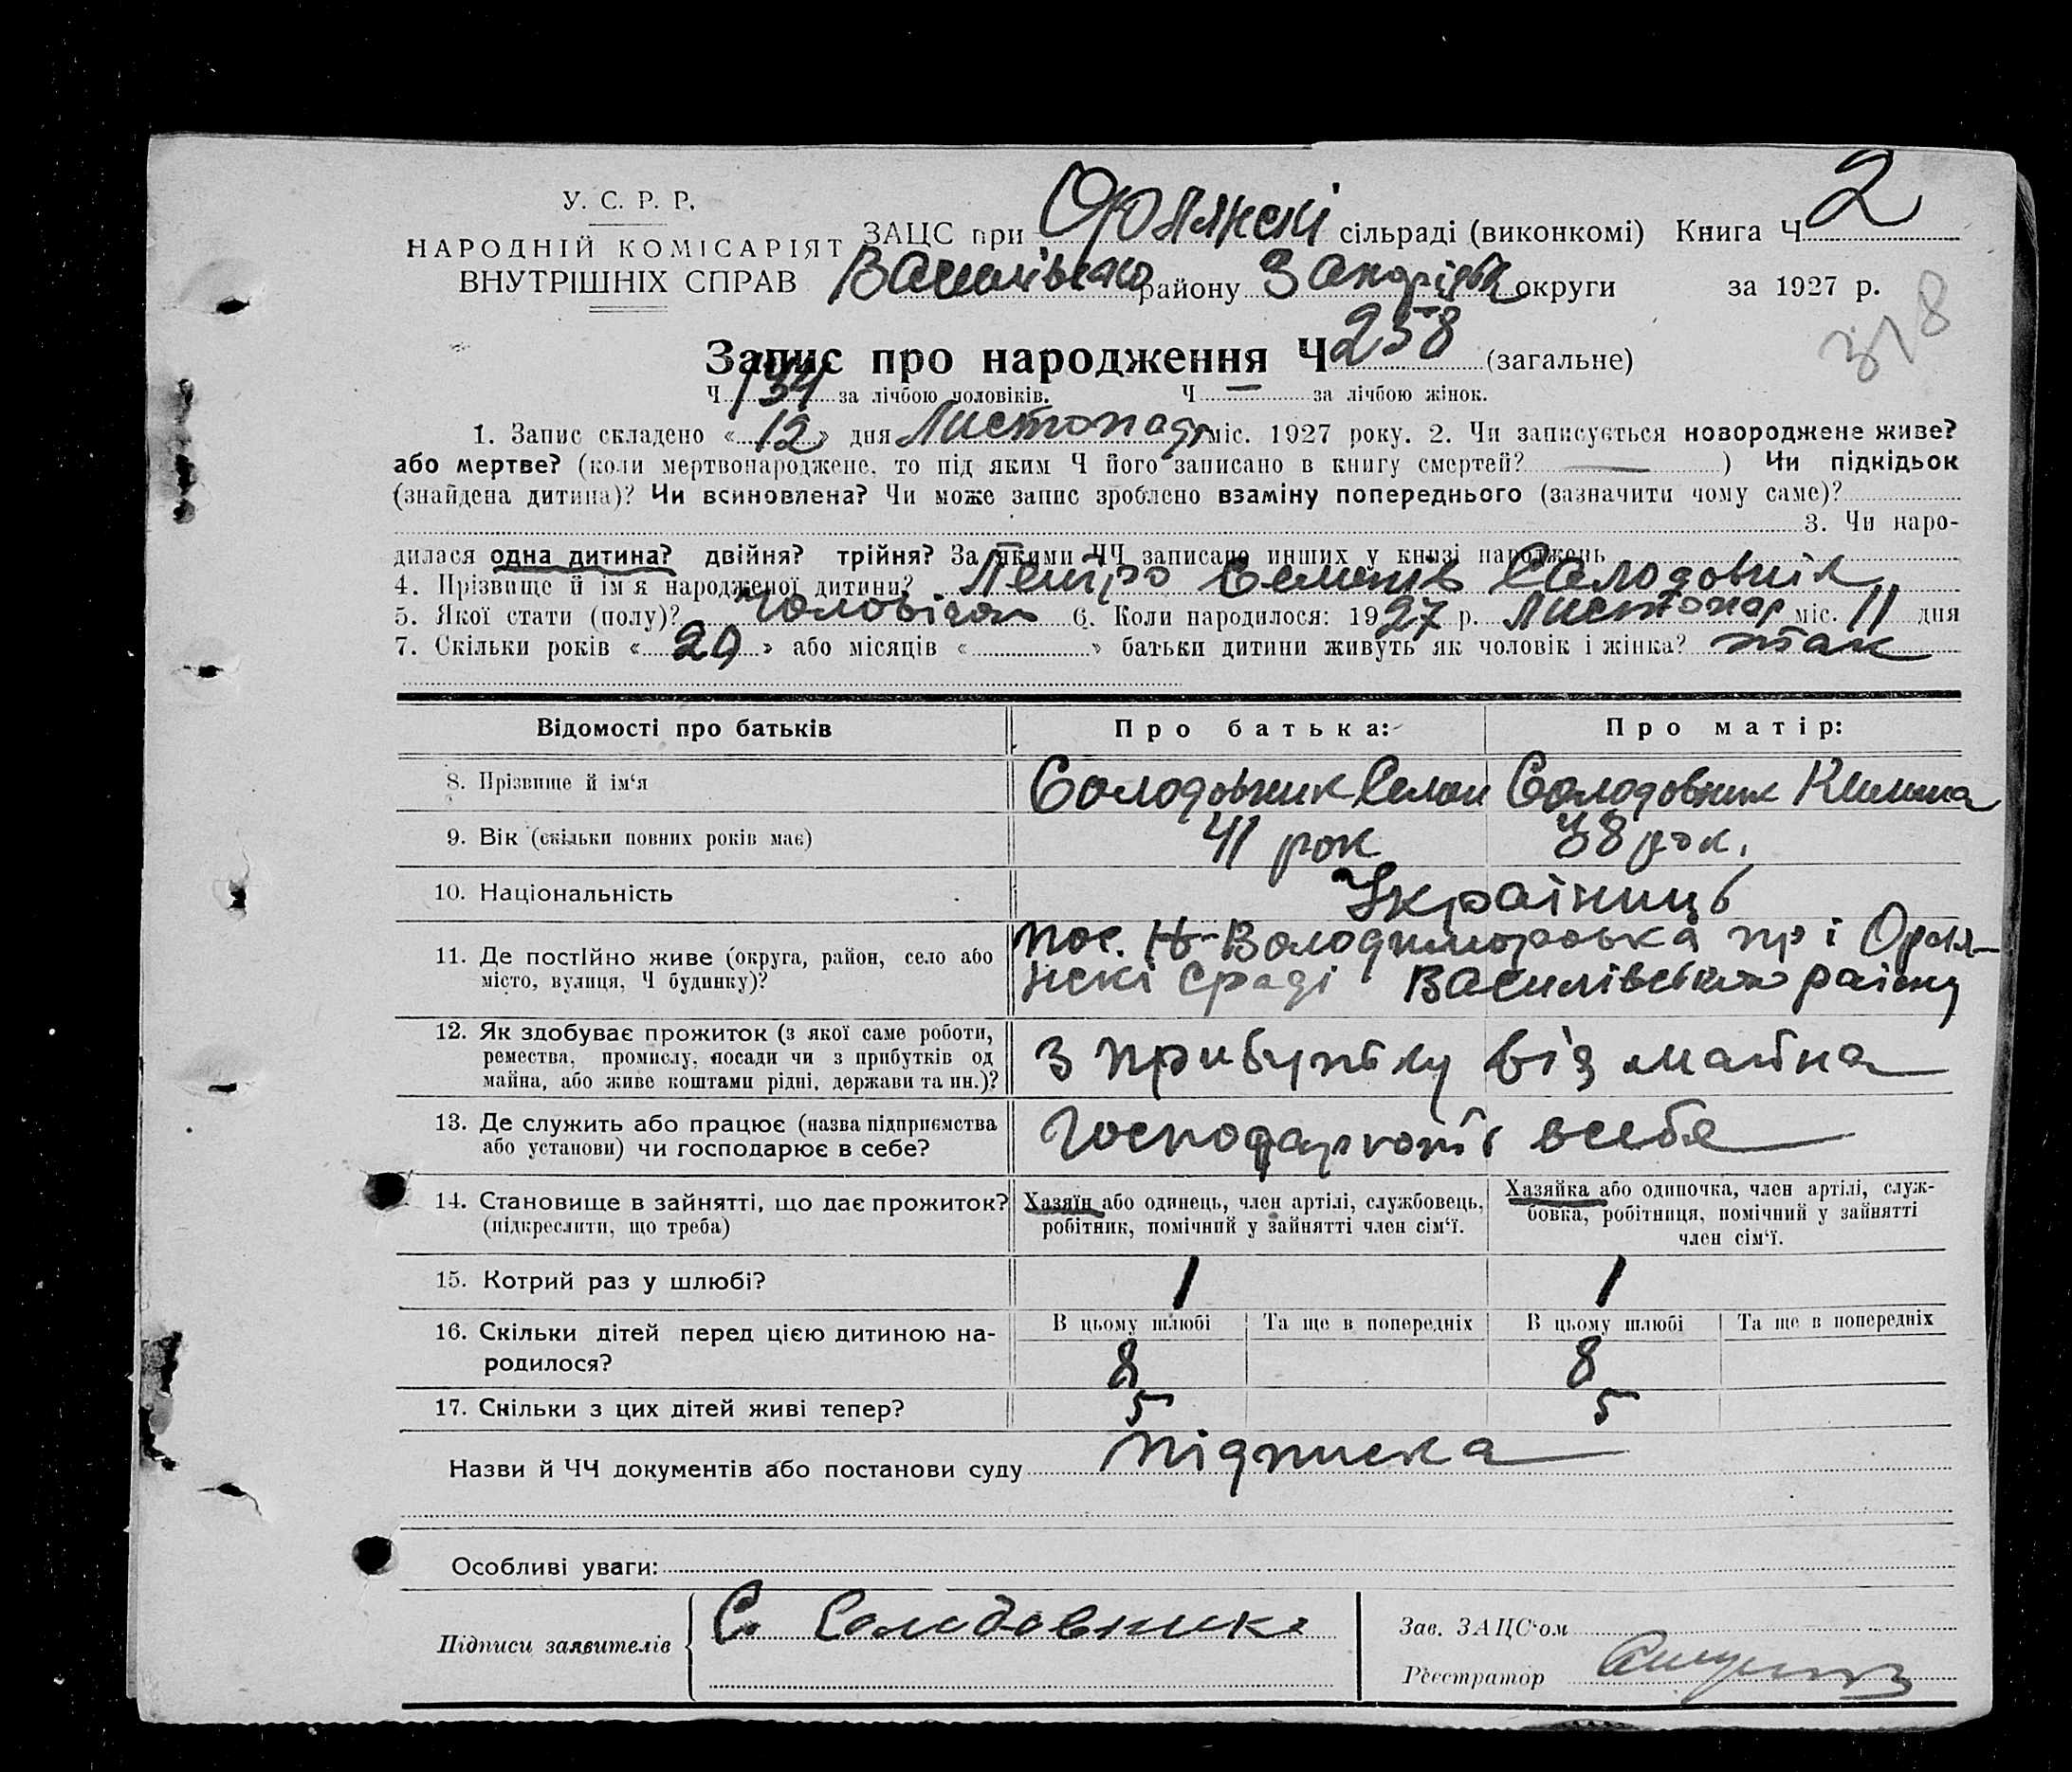 У. С. Р. Р.
НАРОДНІЙ КОМІСАРІЯТ
ВНУТРІШНІХ СПРАВ
ЗАЦС при Орлянскі сільраді (виконкомі) Книга Ч 2
Василівсько району Запоріжк округи за 1927 р.
Запис про народження Ч 258 (загальне)
Ч 134 за лічбою чоловіків. Ч — за лічбою жінок.
1. Запис складено « 12 » дня Листопад міс. 1927 року. 2. Чи записується новороджене живе?
або мертве? (коли мертвонароджене, то під яким Ч його записано в книгу смертей? — ) Чи підкідьок
(знайдена дитина)? Чи всиновлена? Чи може запис зроблено взаміну попереднього (зазначити чому саме)?
3. Чи наро-
дилася одна дитина? двійня? трійня? За якими ЧЧ записано инших у книзі народжень
4. Прізвище й ім'я народженої дитини? Петро Семенів Солодовнік
5. Якої стати (полу)? Чоловіча 6. Коли народилося: 1927 р. Листопад міс. 11 дня
7. Скільки років « 20 » або місяців « » батьки дитини живуть як чоловік і жінка? так
Відомості про батьків
Про батька:
Про матір:
8. Прізвище й ім'я
Солодовник Семен
Солодовник Килина
9. Вік (скільки повних років має)
41 рок
38 рок.
10. Національність
Українць
11. Де постійно живе (округа, район, село або
місто, вулиця, Ч будинку)?
пос. Н-Володимировка пр і Орля-
нскі сраді Василівського району
12. Як здобуває прожиток (з якої саме роботи,
ремества, промислу, посади чи з прибутків од
майна, або живе коштами рідні, держави та ин.)?
З прибутку від майна
13. Де служить або працює (назва підприємства
або установи) чи господарює в себе?
всебе
14. Становище в зайнятті, що дає прожиток?
(підкреслити, що треба)
Хазяїн або одинець, член артілі, службовець,
робітник, помічний у зайнятті член сім'ї.
Хазяйка або одиночка, член артілі, служ-
бовка, робітниця, помічний у зайнятті
член сім'ї.
15. Котрий раз у шлюбі?
1
1
16. Скільки дітей перед цією дитиною на-
родилося?
В цьому шлюбі
Та ще в попередніх
В цьому шлюбі
Та ще в попередніх
8
8
17. Скільки з цих дітей живі тепер?
5
5
Назви й ЧЧ документів або постанови суду підписка
Особливі уваги:
Підписи заявителів
С. Солодовник
Зав. ЗАЦС'ом
Реєстратор